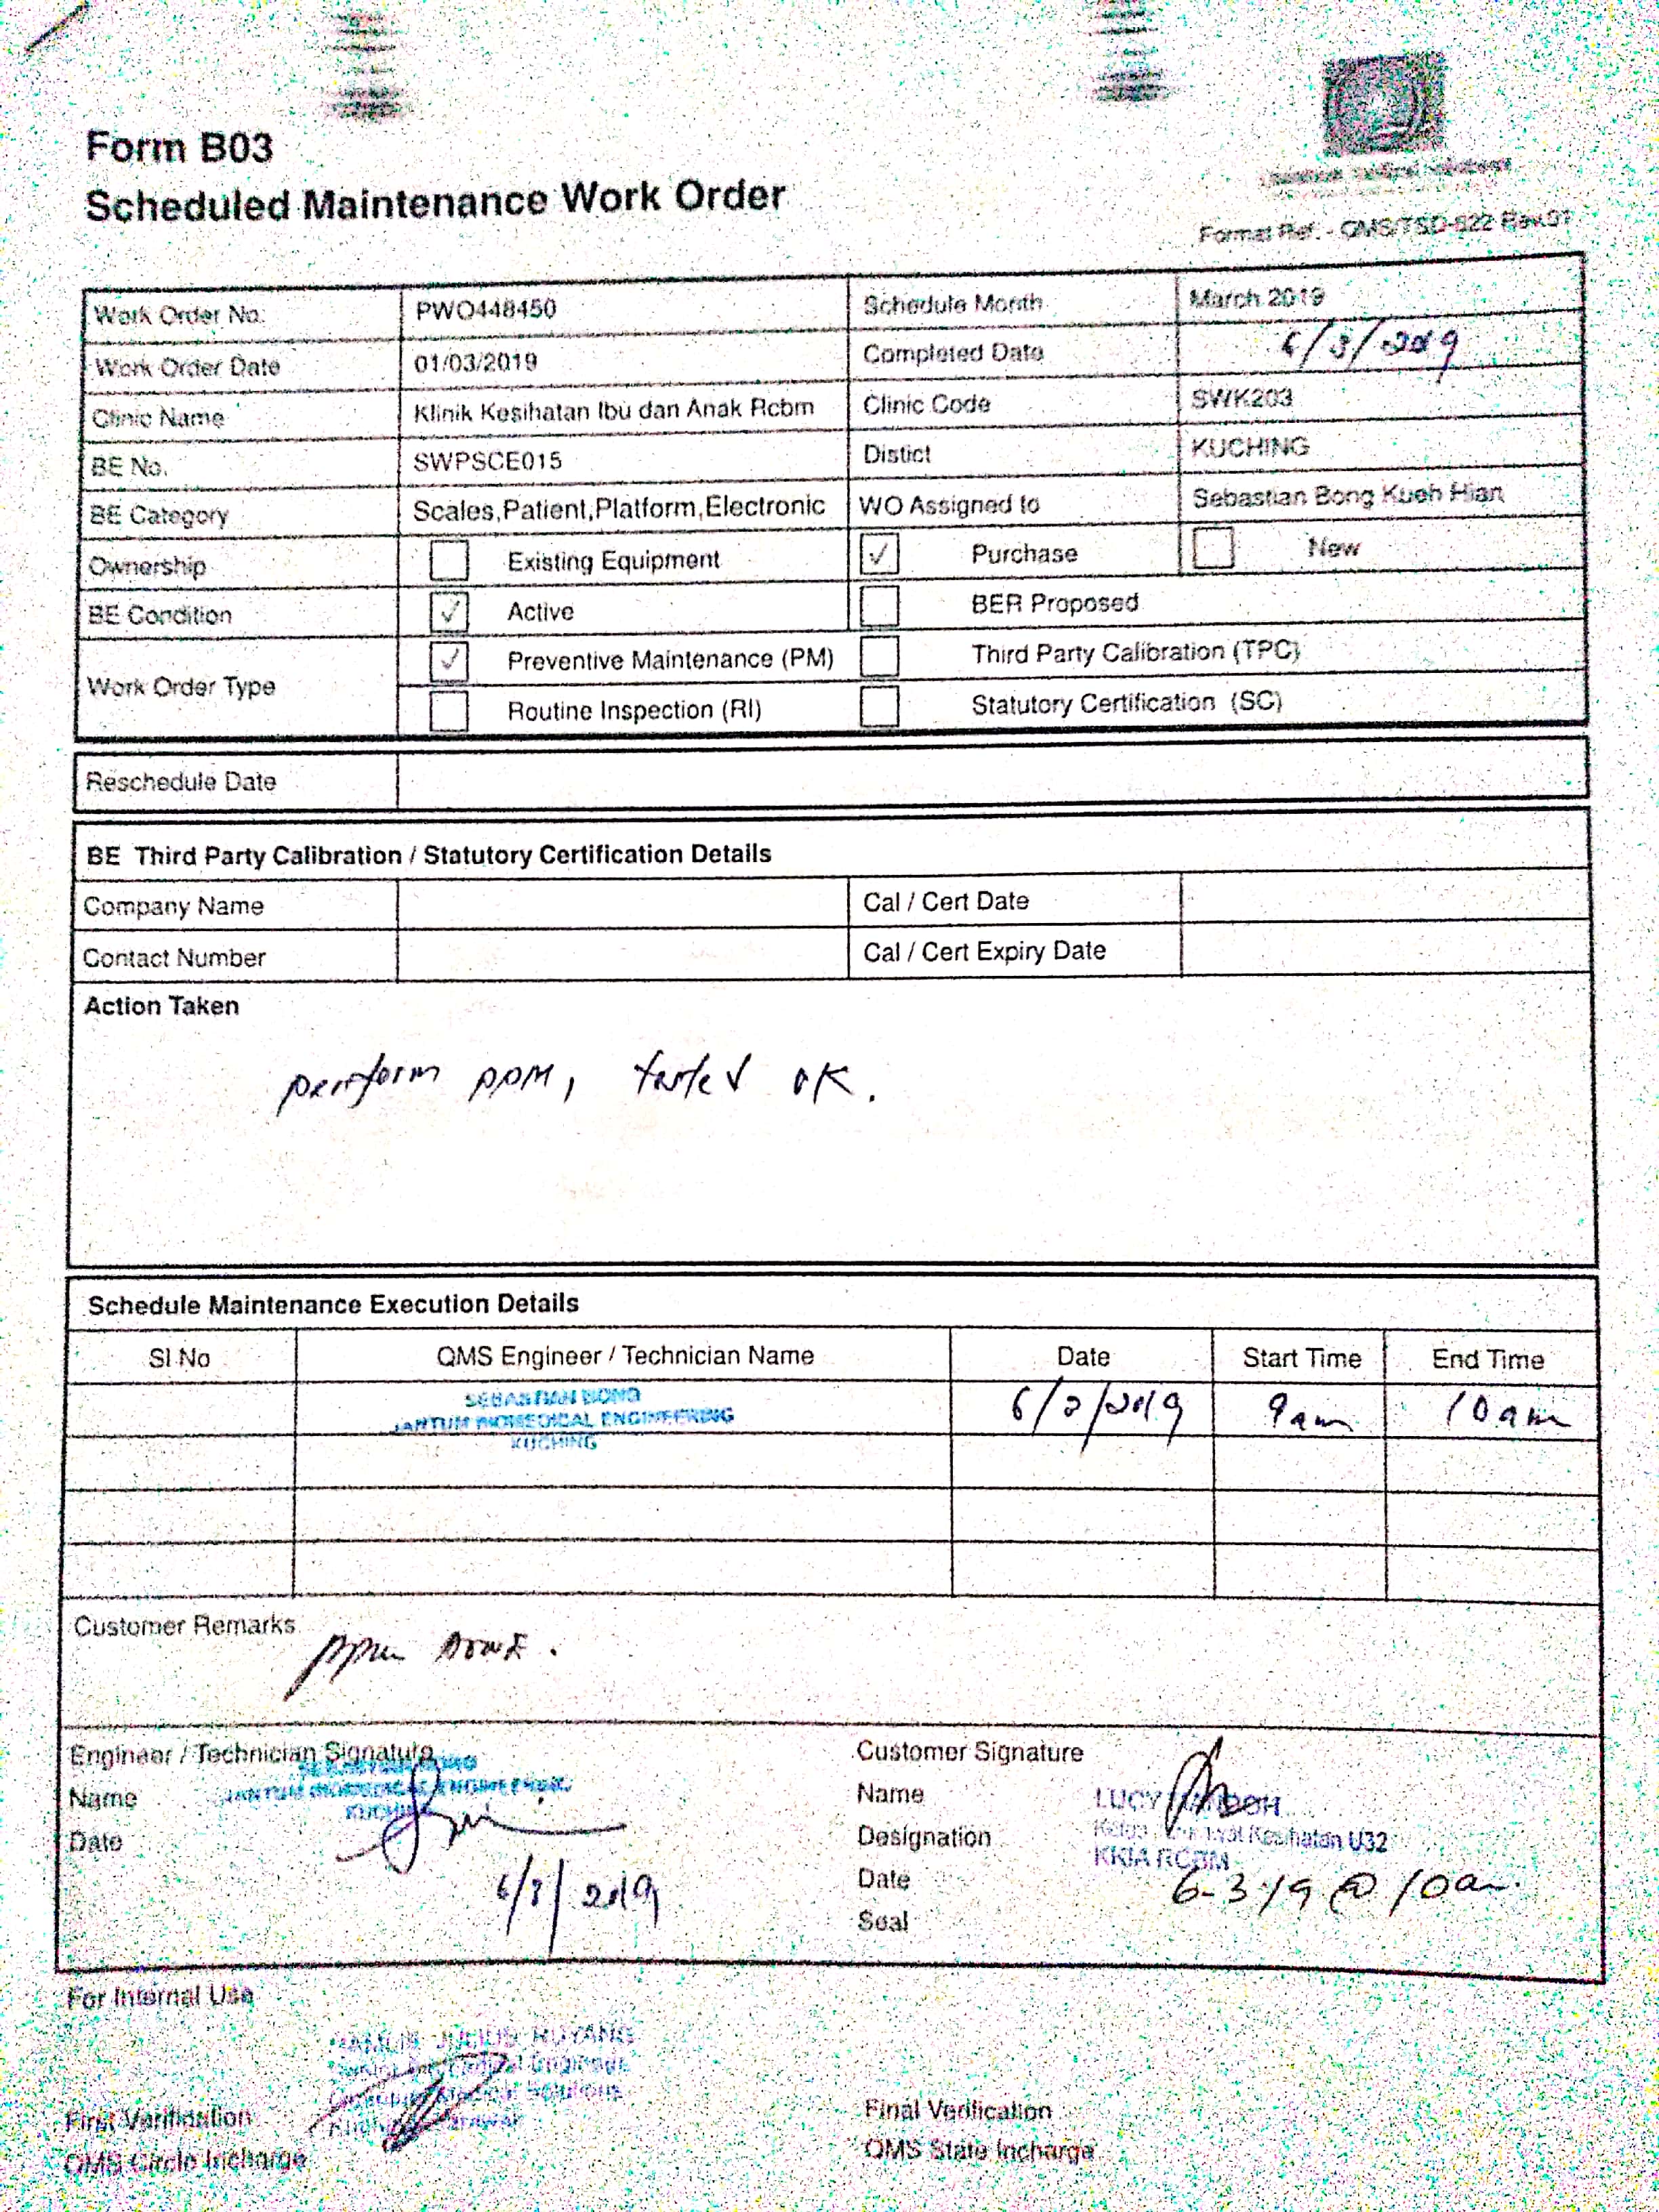 Form B03
Scheduled Maintenance Work Order
Format Ref. - QMS/TSD-622 Rev.01
Work Order No. PWO448450 Schedule Month March 2019
Work Order Date 01/03/2019 Completed Date 6/3/2019
Clinic Name Klinik Kesihatan Ibu dan Anak Rcbm Clinic Code SWK203
BE No. SWPSCE015 Distict KUCHING
BE Category Scales,Patient,Platform,Electronic WO Assigned to Sebastian Bong Kueh Hian
Ownership Existing Equipment ✓ Purchase New
BE Condition ✓ Active BER Proposed
Work Order Type ✓ Preventive Maintenance (PM) Third Party Calibration (TPC)
Routine Inspection (RI) Statutory Certification (SC)
Reschedule Date
BE Third Party Calibration / Statutory Certification Details
Company Name Cal / Cert Date
Contact Number Cal / Cert Expiry Date
Action Taken
perform PPM, tested OK.
Schedule Maintenance Execution Details
Sl No QMS Engineer / Technician Name Date Start Time End Time
SEBASTIAN BONG
JANTUM BIOMEDICAL ENGINEERING
KUCHING
6/3/2019 9am 10am
Customer Remarks
ppm DONE.
Engineer / Technician Signature
SEBASTIAN BONG
Name JANTUM BIOMEDICAL ENGINEERING
KUCHING
Date
6/3/2019
Customer Signature
Name LUCY
Designation Kesihatan U32
KKIA RCBM
Date 6-3-19 @ 10am.
Seal
For Internal Use
JULIUS RUYANG
Engineer
Solutions
First Verification
QMS Circle Incharge
Final Verification
QMS State Incharge